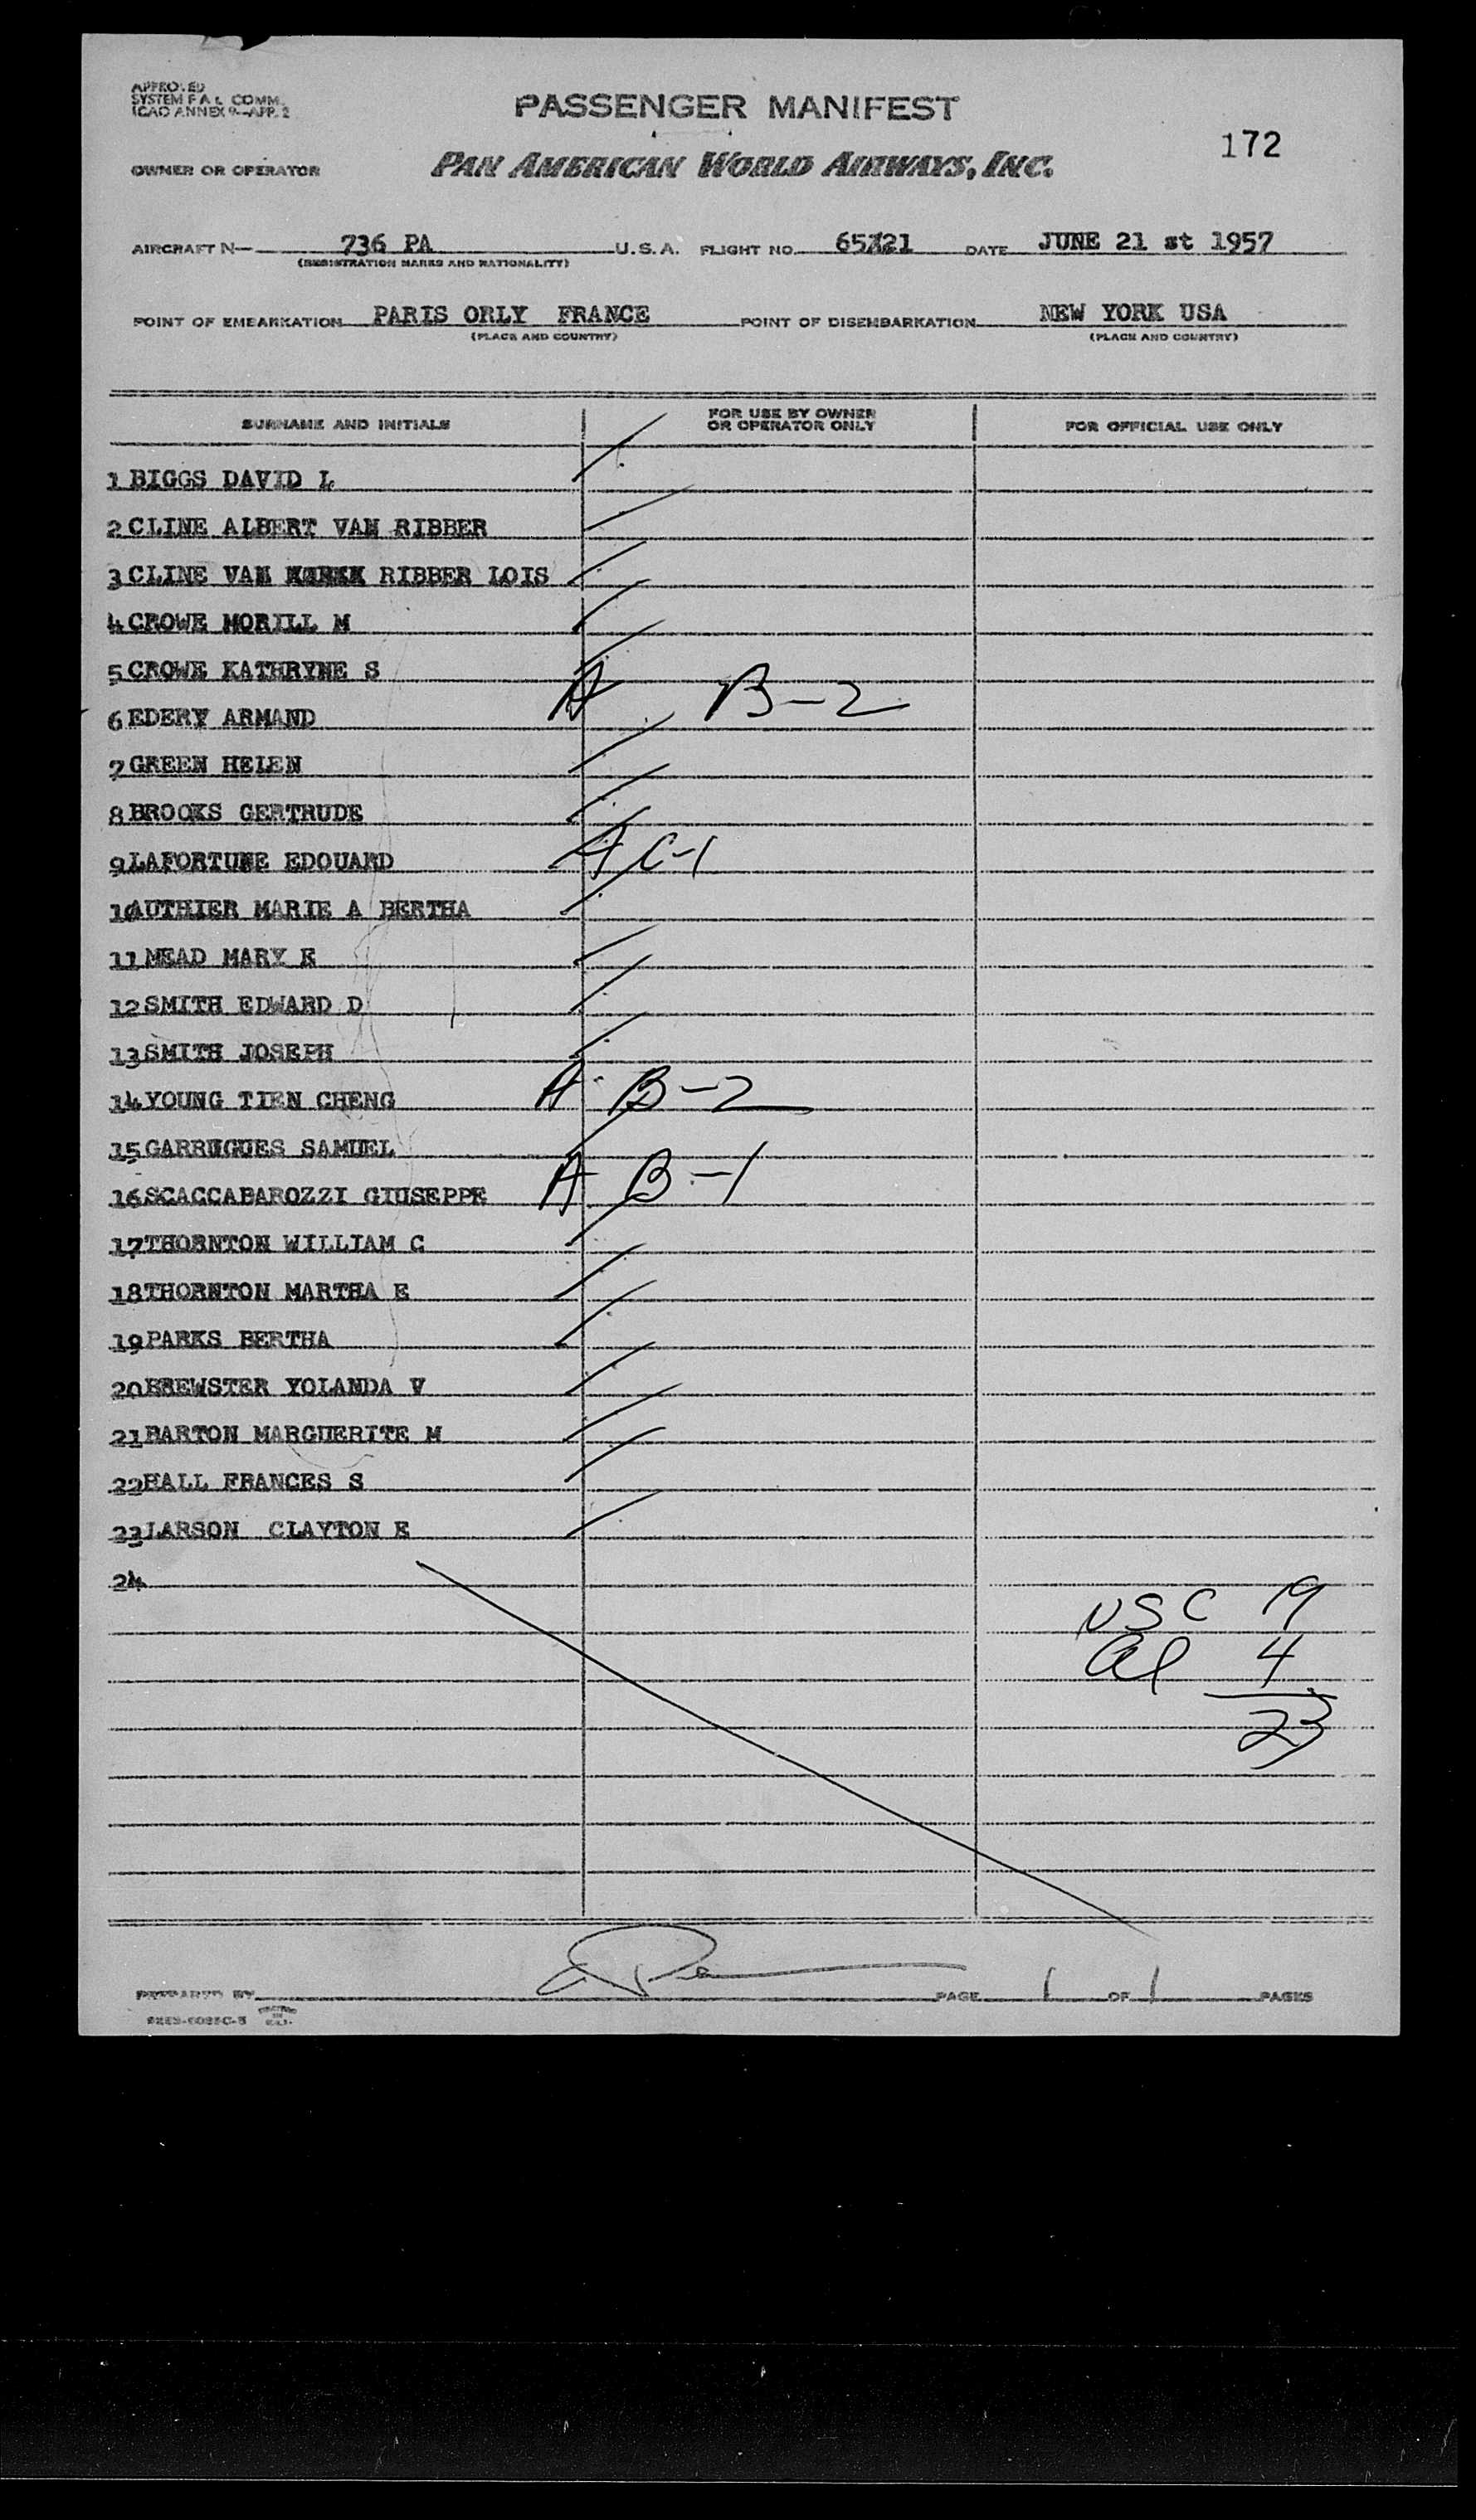 APPROVED
SYSTEM F A L COMM.
ICAO ANNEX 9—APP. 2
PASSENGER MANIFEST
172
OWNER OR OPERATOR
PAN AMERICAN WORLD AIRWAYS, INC.
AIRCRAFT N— 736 PA U.S.A. FLIGHT NO. 65/21 DATE JUNE 21 st 1957
(REGISTRATION MARKS AND NATIONALITY)
POINT OF EMBARKATION PARIS ORLY FRANCE POINT OF DISEMBARKATION NEW YORK USA
(PLACE AND COUNTRY) (PLACE AND COUNTRY)
SURNAME AND INITIALS FOR USE BY OWNER OR OPERATOR ONLY FOR OFFICIAL USE ONLY
1 BIGGS DAVID L
2 CLINE ALBERT VAN RIBBER
3 CLINE VAN RIBBER LOIS
4 CROWE MORILL M
5 CROWE KATHRYNE S
6 EDERY ARMAND A B-2
7 GREEN HELEN
8 BROOKS GERTRUDE
9 LAFORTUNE EDOUARD A C-1
10 AUTHIER MARIE A BERTHA
11 MEAD MARY E
12 SMITH EDWARD D
13 SMITH JOSEPH
14 YOUNG TIEN CHENG A B-2
15 GARRUGUES SAMUEL
16 SCACCABAROZZI GIUSEPPE A B-1
17 THORNTON WILLIAM C
18 THORNTON MARTHA E
19 PARKS BERTHA
20 BREWSTER YOLANDA V
21 BARTON MARGUERITE M
22 HALL FRANCES S
23 LARSON CLAYTON E
24
USC 19
al 4
23
PREPARED BY PAGE 1 OF 1 PAGES